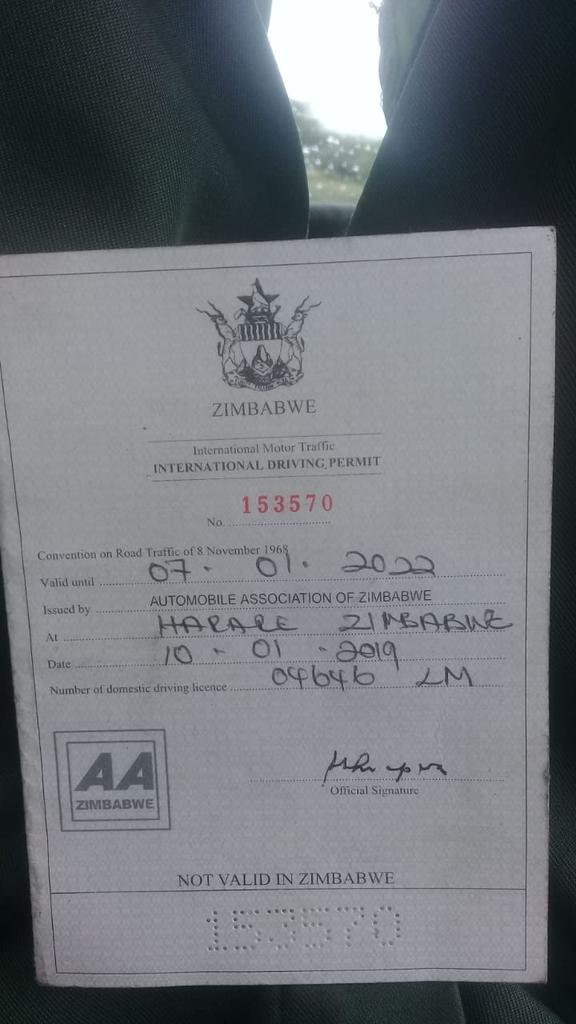 ZIMBABWE
International Motor Traffic
INTERNATIONAL DRIVING PERMIT
No. 153570
Convention on Road Traffic of 8 November 1968
Valid until 07 . 01 . 2022
Issued by AUTOMOBILE ASSOCIATION OF ZIMBABWE
At HARARE ZIMBABWE
Date 10 - 01 - 2019
Number of domestic driving licence 04646 LM
AA
ZIMBABWE
Official Signature
NOT VALID IN ZIMBABWE
153570